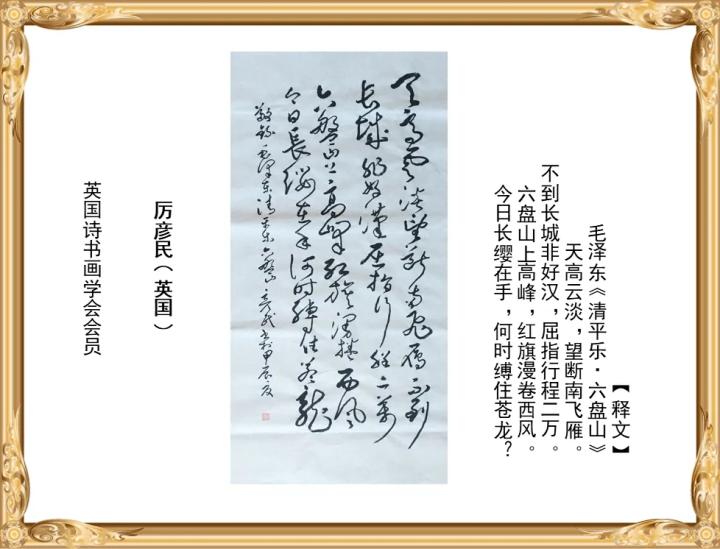 【释文】
毛泽东《清平乐·六盘山》
天高云淡，望断南飞雁。
不到长城非好汉，屈指行程二万。
六盘山上高峰，红旗漫卷西风。
今日长缨在手，何时缚住苍龙？
天高雲淡望斷南飛雁不到
長城非好漢屈指行程二萬
六盤山上高峰紅旗漫捲西風
今日長纓在手何時縛住蒼龍
敬錄毛澤東清平樂六盤山彦民書於甲辰夏
厉彦民（英国）
英国诗书画学会会员